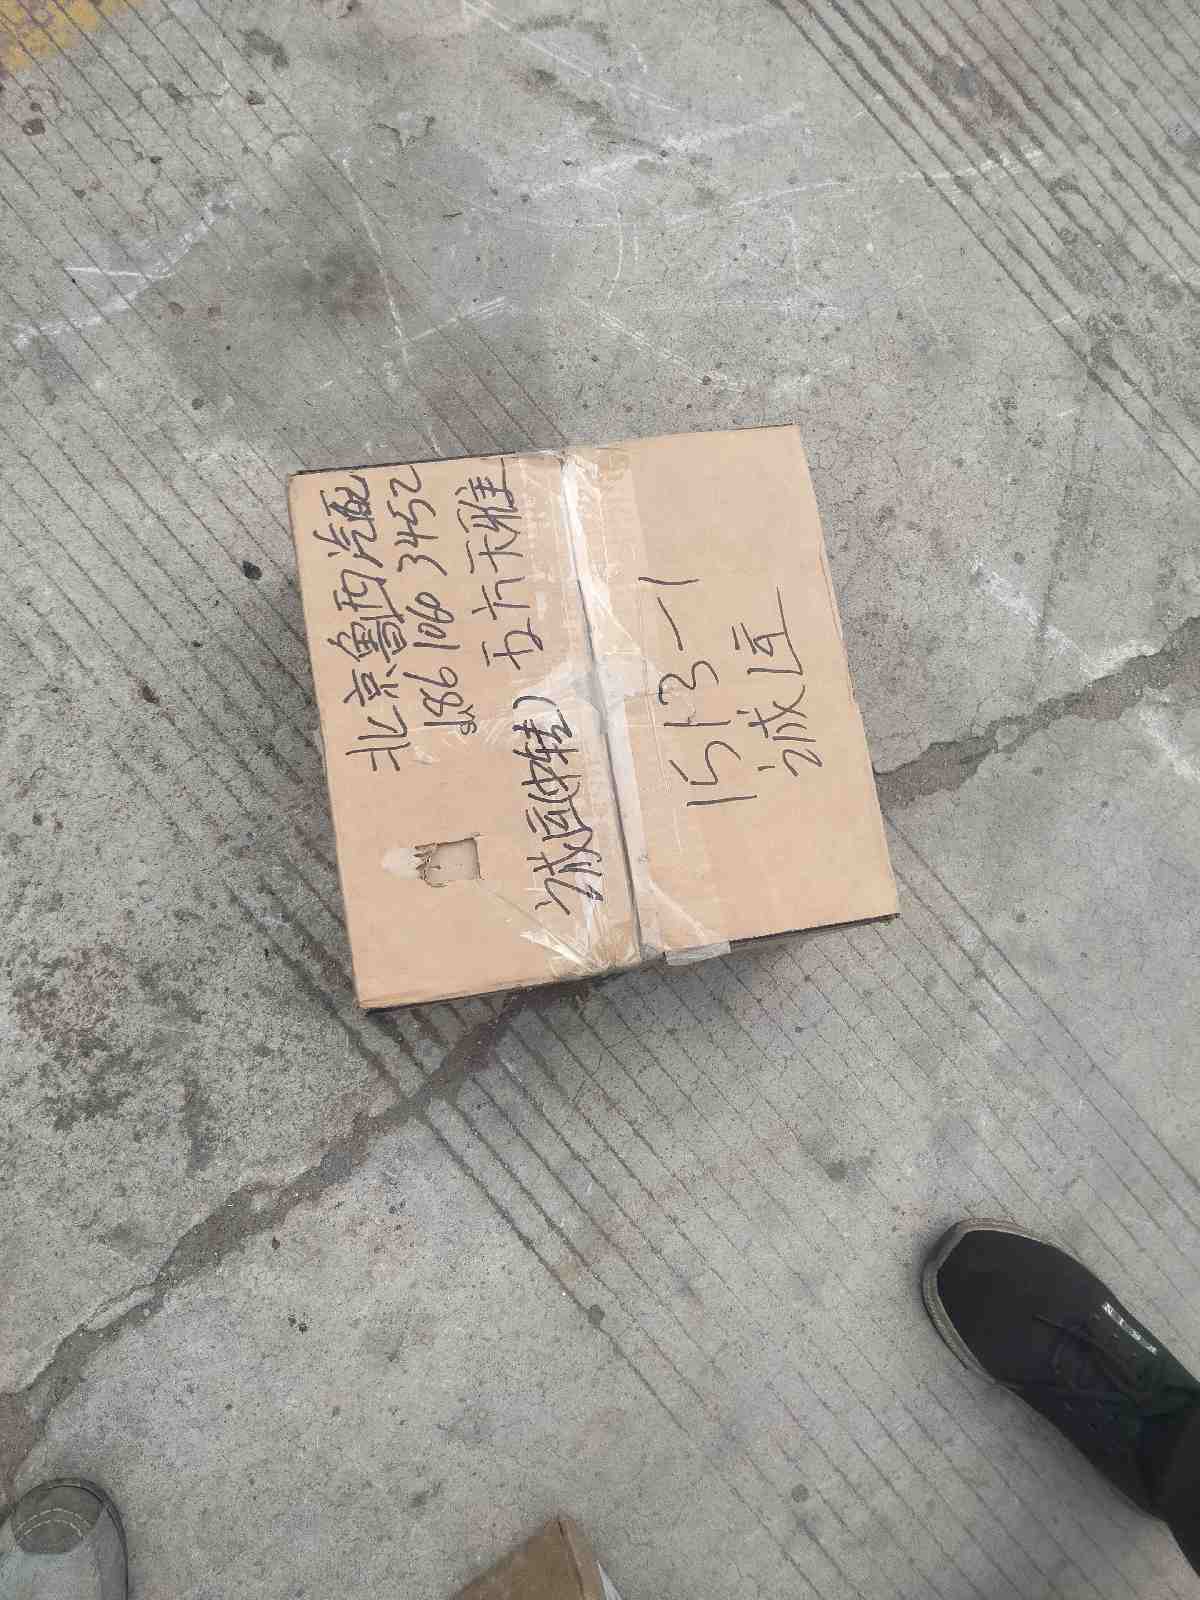 北京鲁西汽配
186 1060 3452
五方天雅
诚匠(中转)
1513-1
诚匠